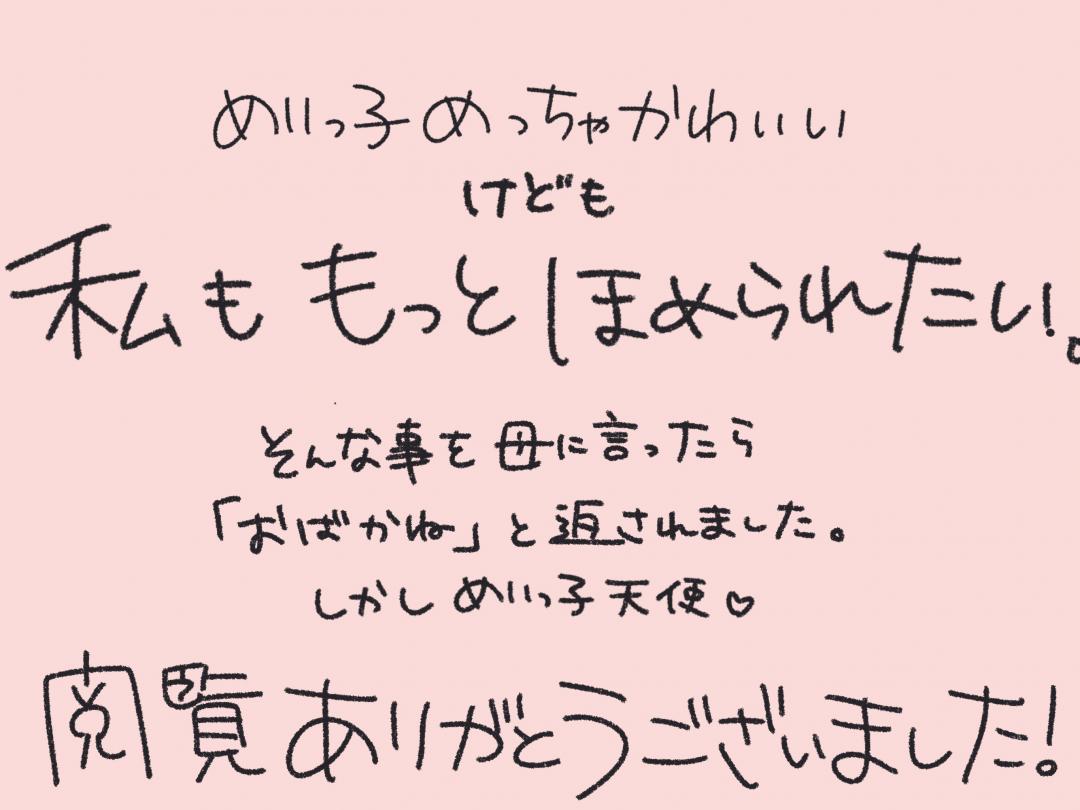 めいっ子めっちゃかわいい
けども
私ももっとほめられたい。
そんな事を母に言ったら
「おばかね」と返されました。
しかしめいっ子天使♡
閲覧ありがとうございました!